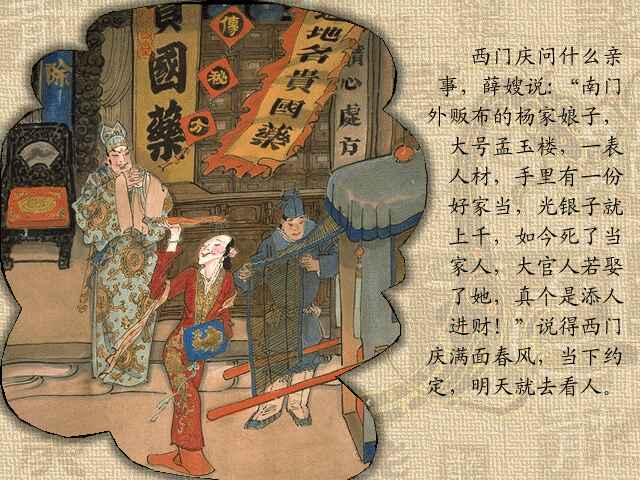 國藥
傳
秘
方
道地名貴國藥
精心處方
除
西门庆问什么亲
事，薛嫂说：“南门
外贩布的杨家娘子，
大号孟玉楼，一表
人材，手里有一份
好家当，光银子就
上千，如今死了当
家人，大官人若娶
了她，真个是添人
进财！”说得西门
庆满面春风，当下约
定，明天就去看人。